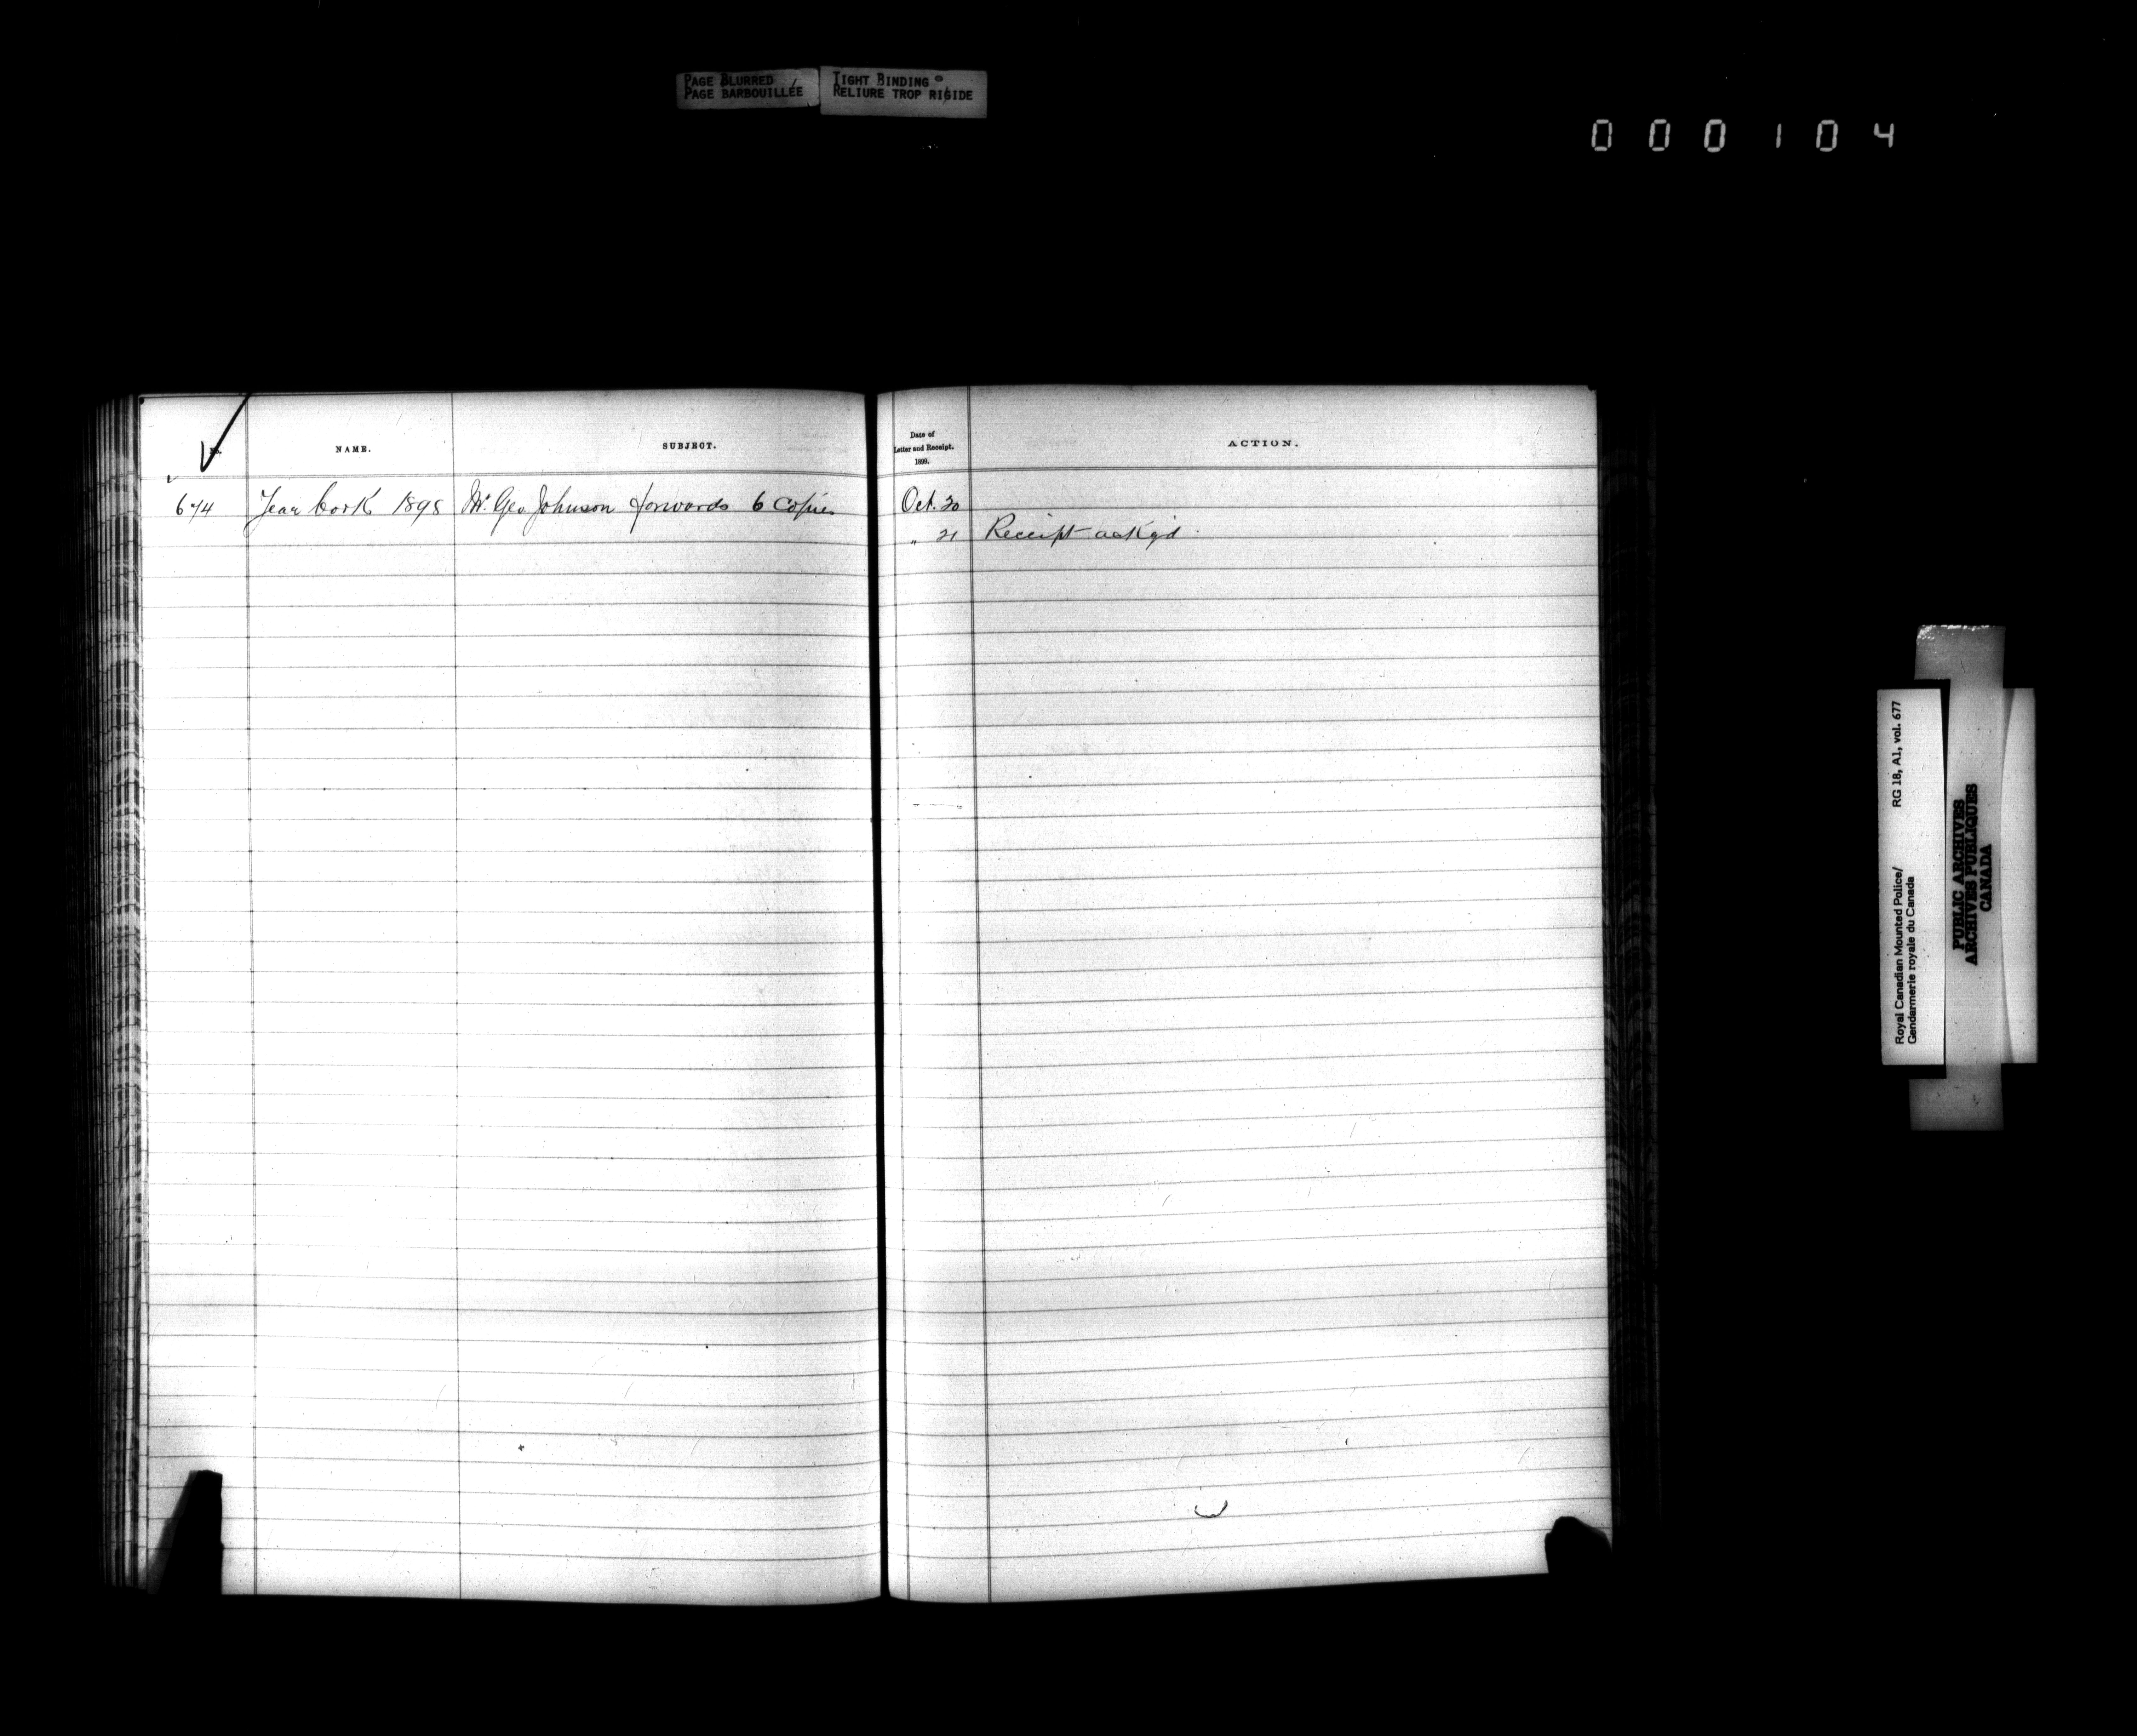 PAGE BLURRED
PAGE BARBOUILLÉE
TIGHT BINDING
RELIURE TROP RIGIDE
000104
No. NAME. SUBJECT. Date of Letter and Receipt. 1899. ACTION.
674 Year book 1898 Mr. Geo Johnson forwards 6 Copies Oct. 20
" 21 Receipt ackgd.
Royal Canadian Mounted Police/ RG 18, A1, vol. 677
Gendarmerie royale du Canada
PUBLIC ARCHIVES
ARCHIVES PUBLIQUES
CANADA